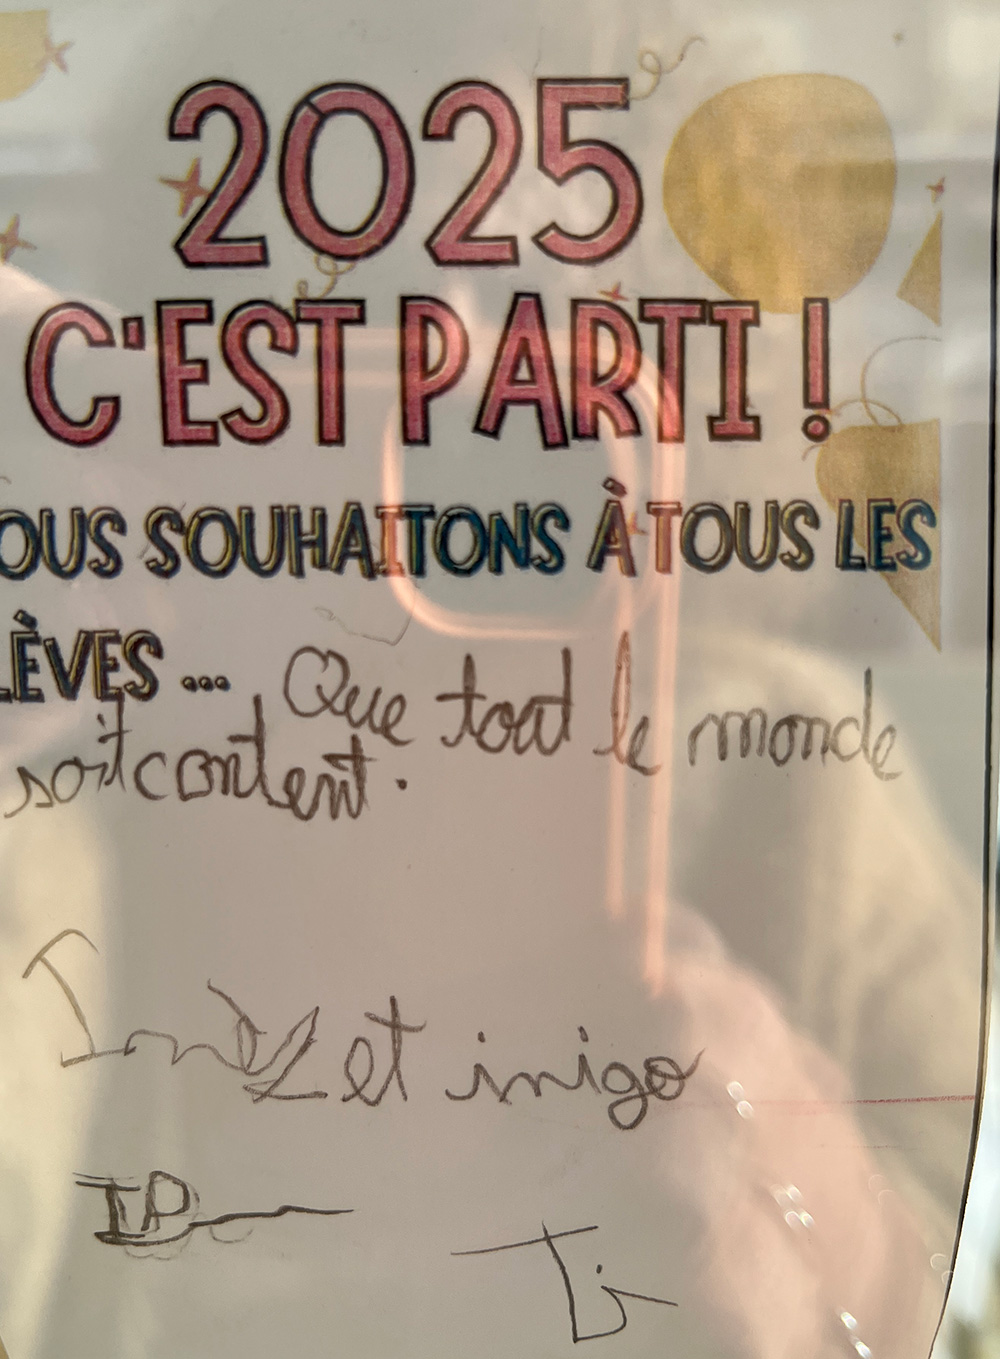 2025
C'EST PARTI !
OUS SOUHAITONS À TOUS LES
LÈVES ... Que tout le monde
soit content.
et inigo